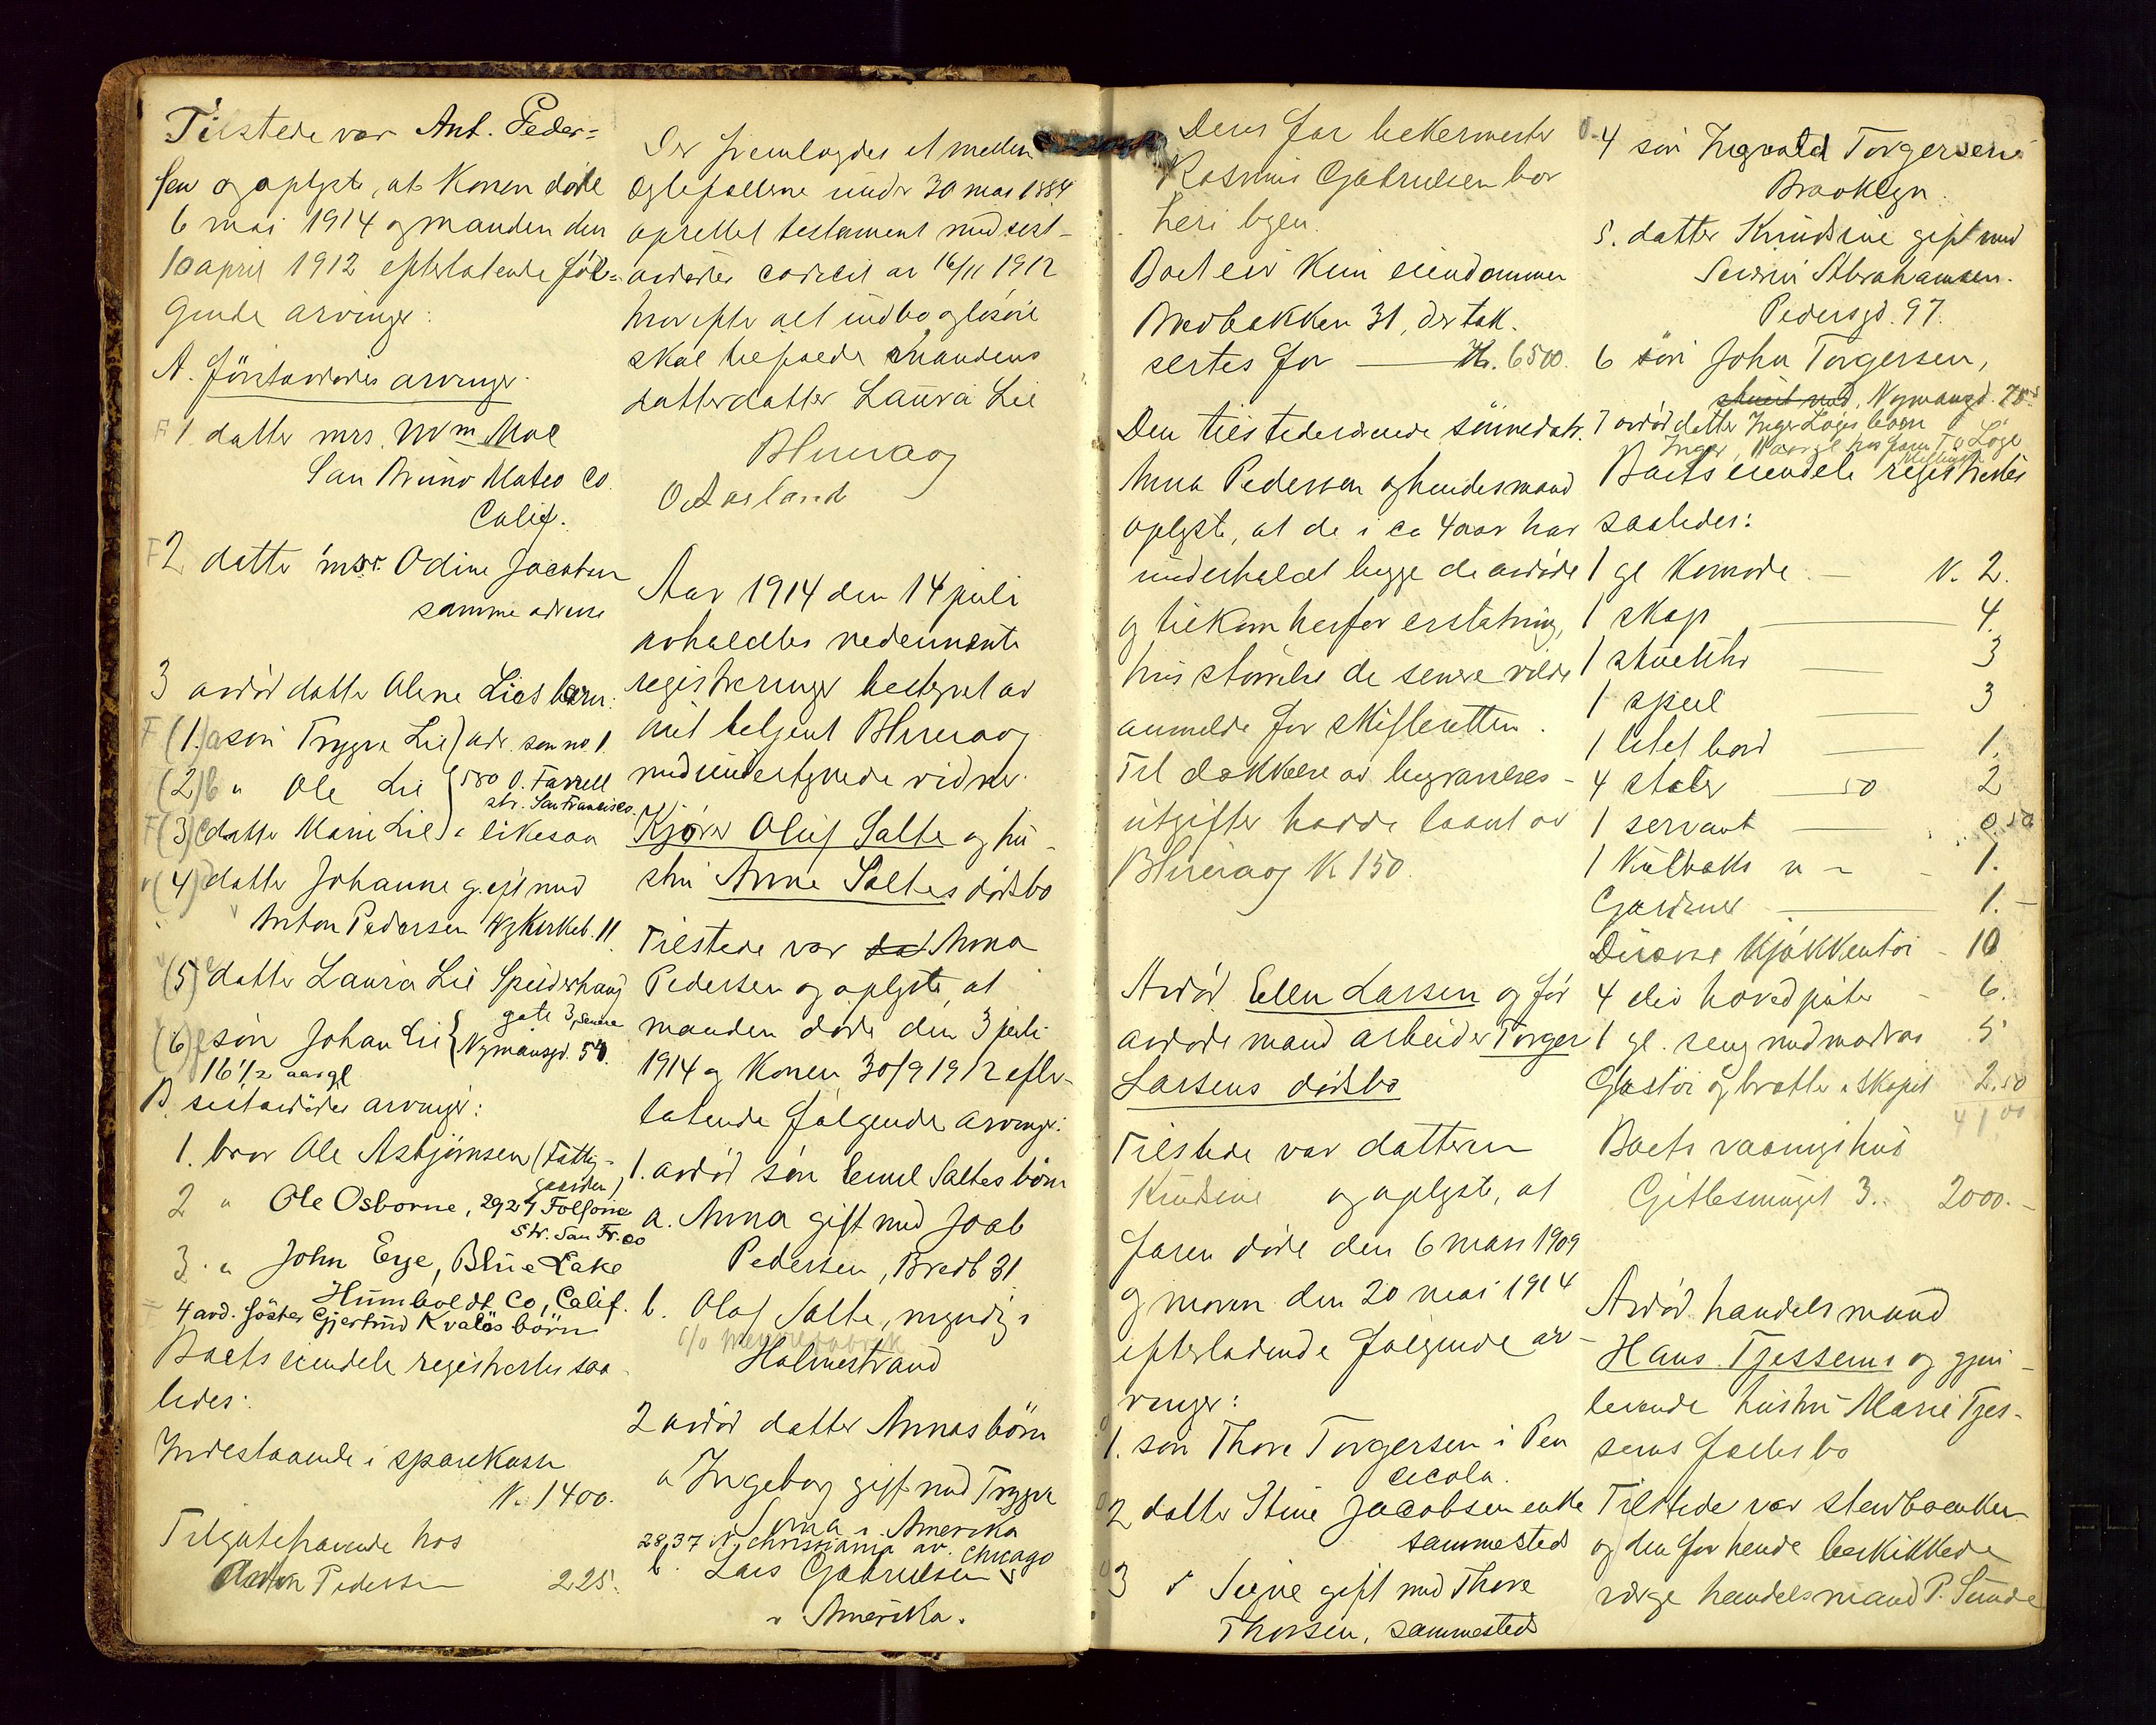 Tilstede var Ant. Peder-
sen og oplyste, at konen döde
6 mai 1914 og manden den
10 april 1912 efterlatende föl-
gende arvinger:
A. förstavdödes arvinger.
1. datter mrs. Wm Moe
San Bruno Mateo Co.
Calif.
2 datter mrs. Odine Jacobsen
samme adresse
3 avdød datter Olene Lies børn:
(1) a søn Trygve Lie) adr. som no 1.
(2) b " Ole Lie { 580 O. Farrell
str. San Francisco
(3) c datter Marie Lie) " likesaa
(4) datter Johanne gift med
Anton Pedersen Ny Kirkeb. 11
(5) e datter Laura Lie Speiderhaug
gate 3, senere
(6) f søn Johan Lie { Nymansgd. 50.
16 1/2 aar gl
B. sistavdödes arvinger:
1. bror Ole Asbjørnsen (Fattig-
gaarden)
2 " Ole Osborne, 2924 Folsome
Str. San Fr.co
3. " John Erge, Blue Lake
Humboldt Co, Calif.
4 avd. söster Gjertrud Kvaløs börn
Boets eiendele registrertes saa-
ledes:
Indestaaende i sparekasse
K. 1400.
Tilgodehavende hos
Anton Pedersen 225.
Der fremlagdes et mellem
egtefællene under 30 mai 1884
oprettet testament med sist-
avdødes codicil av 16/11 1912
hvorefter alt indbo og løsøre
skal tilfalde mandens
datterdatter Laura Lie
BHuraag
O Aasland
Aar 1914 den 14 juli
avholdtes nedennævnte
registreringer bestyret av
aut betjent BHuraag
med undertegnede vidner.
Kjører Oluf Salte og hu-
stru Anne Saltes dødsbo
Tilstede var Anna
Pedersen og oplyste, at
manden døde den 3 juli
1914 og konen 30/9 1912 efter-
latende følgende arvinger:
1. avdød søn Emil Saltes börn
a. Anna gift med Joab
Pedersen, Bredb 31
b. Olaf Salte, myndig i
c/o
Holmestrand
2 avdød datter Annas börn
a Ingeborg gift med Trygve
i Amerika
2837 N. Christiania av. Chicago
b. Lars Gabrielsen
i Amerika.
Deres far bekermester
Rasmus Gabrielsen bor
her i byen.
Boet eier kun eiendommen
Bredbakken 31, der tak-
sertes for Kr. 6500.
Den tilstedeværende sønnedatr.
Anna Pedersen og hendes mand
oplyste, at de i ca 4 aar har
underholdt begge de avdøde
og tilkom herfor erstatning,
hvis størrelse de senere vilde
anmelde for skifteretten.
Til dækkelse av begravelses-
utgifter hadde laant av
BHuraag K 150.
Avdød Ellen Larsen og før
avdøde mand arbeider Torger
Larsens dødsbo
Tilstede var datteren
Knudsine og oplyste, at
faren døde den 6 mars 1909
og moren den 20 mai 1914
efterladende følgende ar-
vinger:
1. søn Thore Torgersen i Pen
cecola.
2 datter Stine Jacobsen enke
sammesteds
3 " Signe gift med Thore
Thorsen, sammesteds
4 søn Ingvald Torgersen
Brooklyn.
5. datter Knudsine gift med
Severin Abrahamsen.
Pedersgd. 97.
6 søn John Torgersen,
Nymansgd. 28
7 avdød datter Inger Løges börn
Boets eiendele registrertes
saaledes:
1 gl Komode — K. 2.
1 skap — 4.
1 stueuhr — 3
1 speil — 3
1 litet bord — 1.
4 stoler — 50 2
1 servant — 0.50
1 Kulboks — 1.
Gardiner — 1.-
Diverse Kjøkkentøi - 10
4 div hovedputer - 6.
1 gl. seng med madras 5
Glastøi og bratter i skapet 2.50
41 00
Boets vaaningshus
Gitlesmuget 3. 2000.-
Avdød handelsmand
Hans Tjessems og gjen-
levende hustru Marie Tjes-
sems fællesbo
Tilstede var stervboenken
og den for hende beskikkede
verge handelsmand P. Sunde